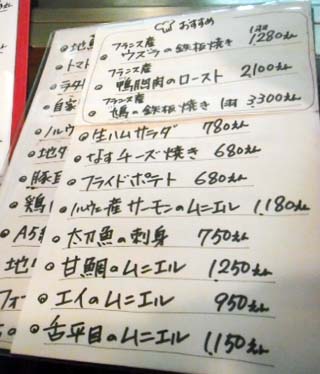 おすすめ
フランス産 1羽
・ウズラの鉄板焼き 1280えん
フランス産
・鴨胸肉のロースト 2100えん
フランス産
・鳩の鉄板焼き 1羽 3300えん
・生ハムサラダ 780えん
・なすチーズ焼き 680えん
・フライドポテト 680えん
・ノルウェー産サーモンのムニエル 1,180えん
・太刀魚の刺身 750えん
・甘鯛のムニエル 1,250えん
・エイのムニエル 950えん
・舌平目のムニエル 1,150えん
・地魚
・トマト
・ラタ
・自家
・ノルウ
・地タ
・豚
・鶏
・A5
・地
・フォ